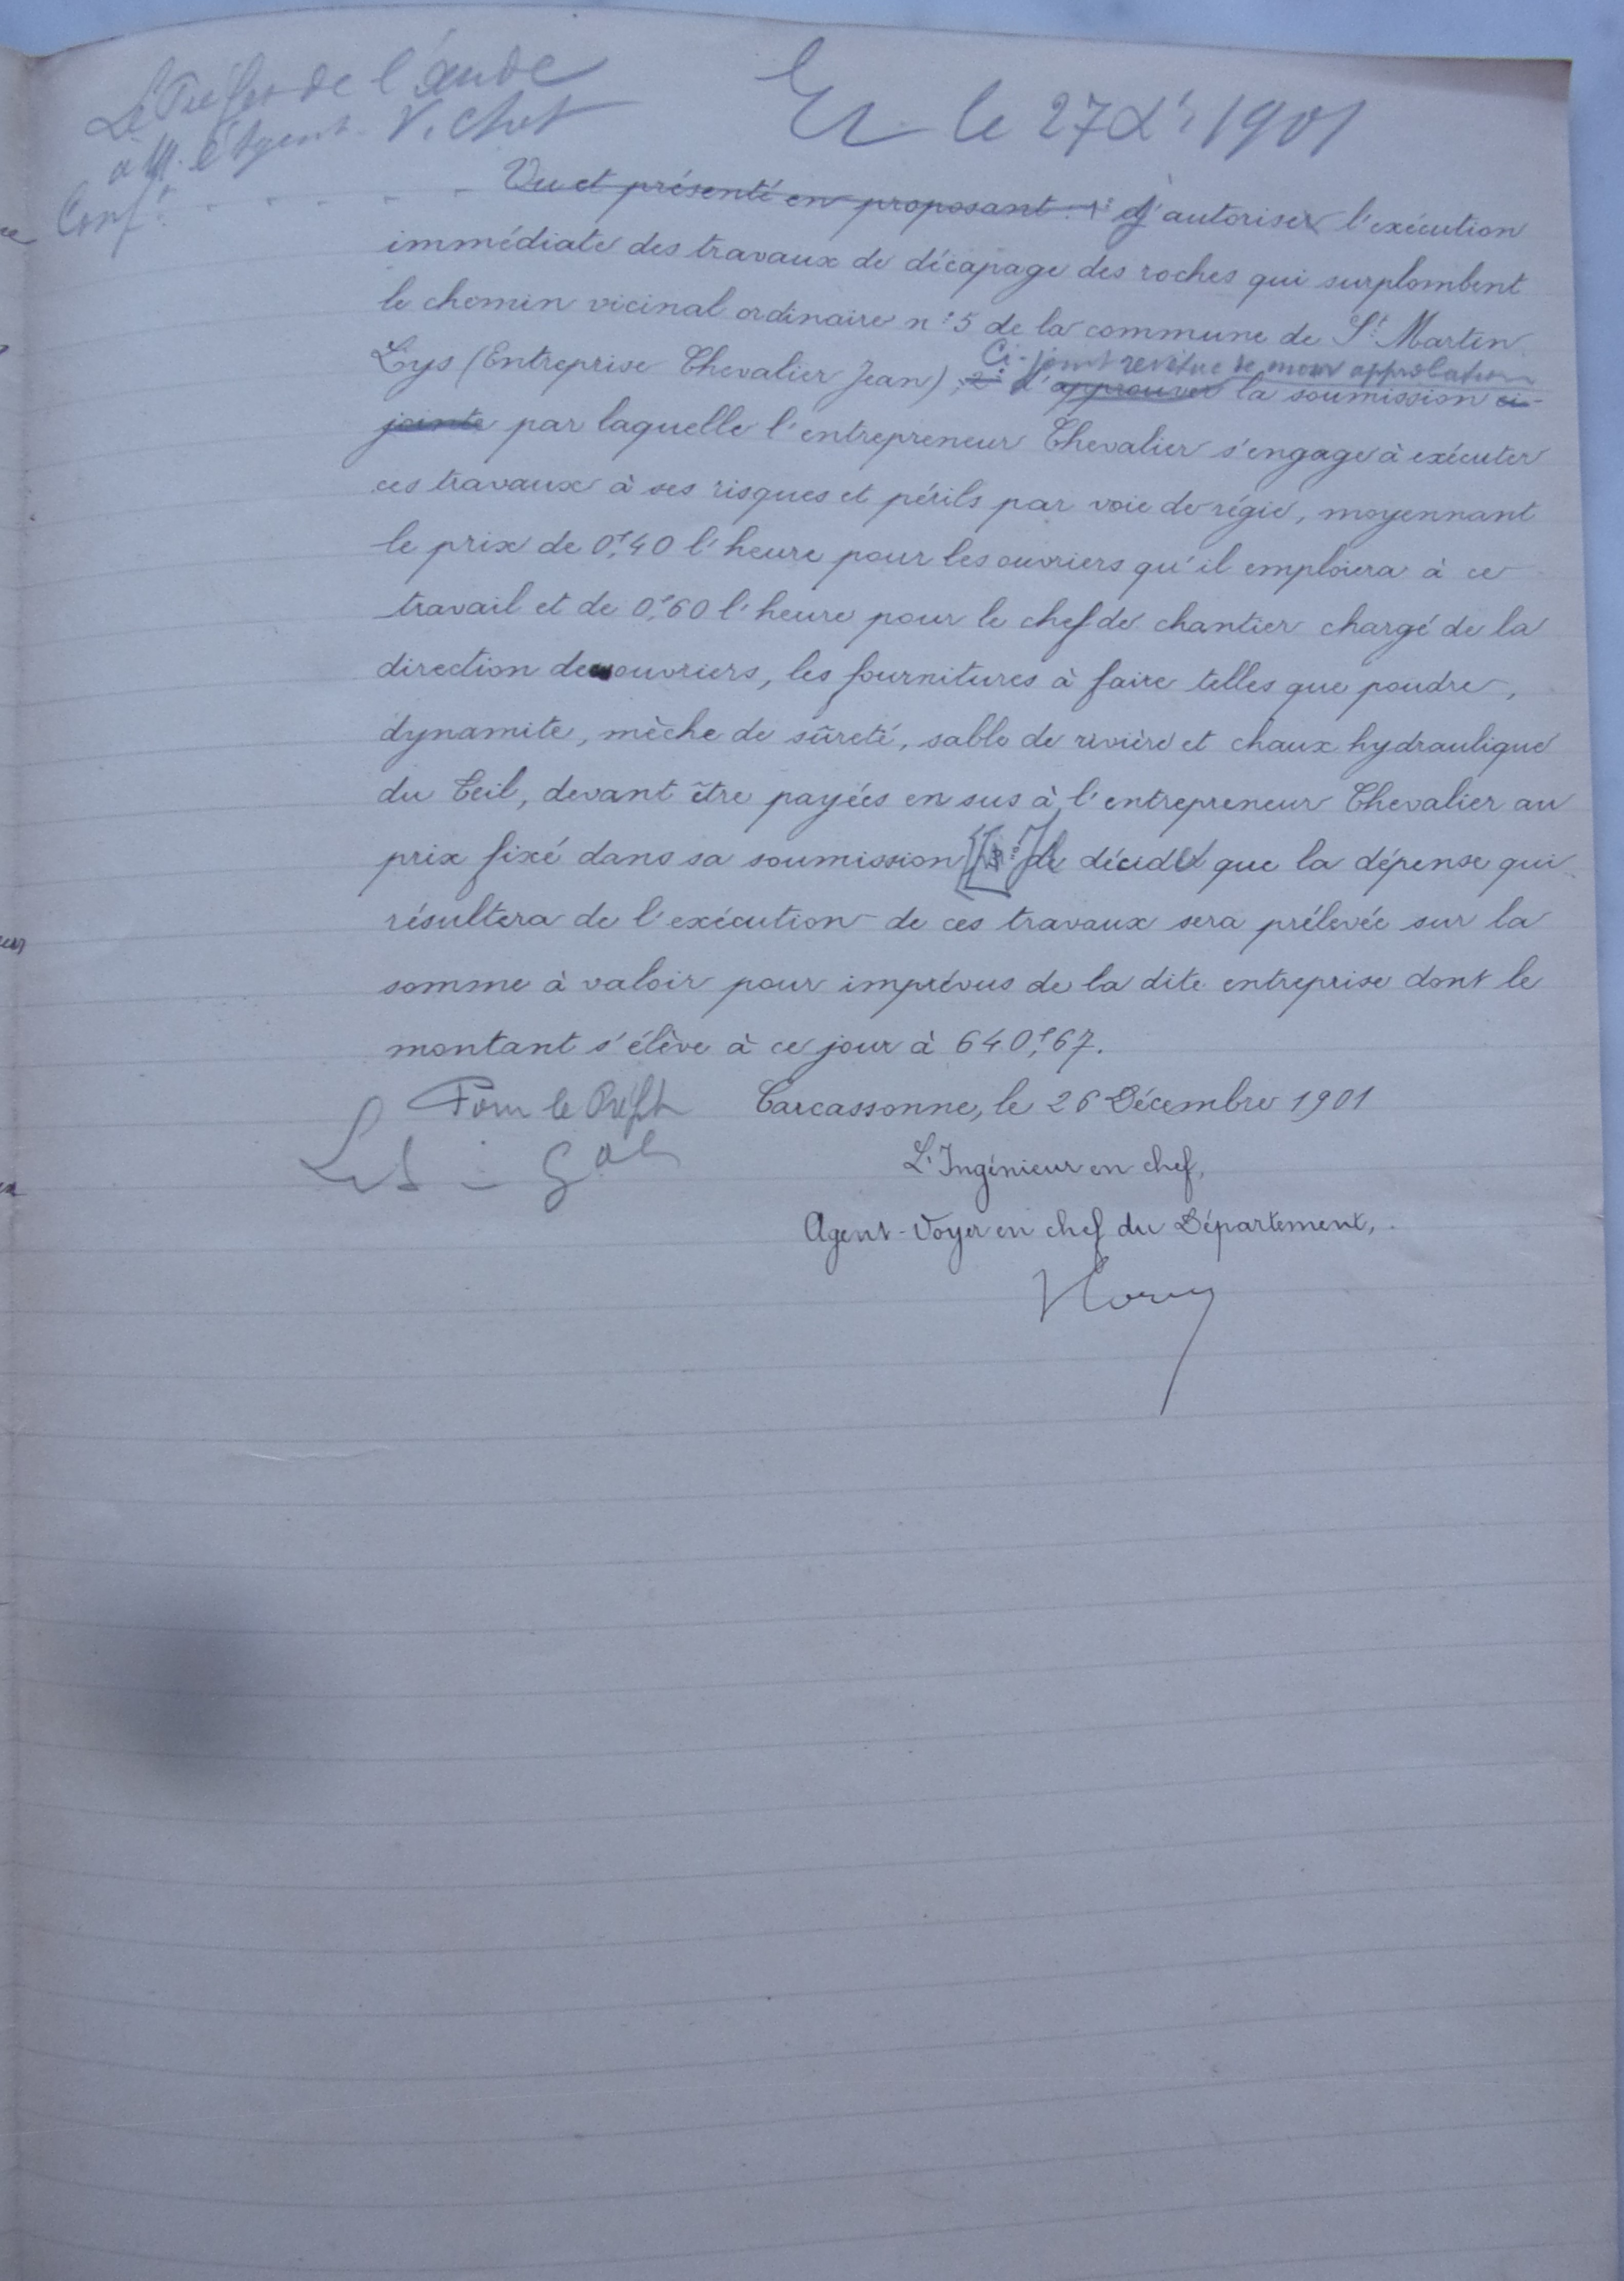 Le Préfet de l'Aude
à M. l'Agent-V. Chef
le 27 Xr 1901
Conf.t . . . . . .
Vu et présenté en proposant : 1° d'autoriser l'exécution
immédiate des travaux de décapage des roches qui surplombent
le chemin vicinal ordinaire n° 5 de la commune de St Martin
Ci-joint revêtue de mon approbation
Lys (Entreprise Chevalier Jean), 2° d'approuver la soumission ci-
jointe par laquelle l'entrepreneur Chevalier s'engage à exécuter
ces travaux à ses risques et périls par voie de régie, moyennant
le prix de 0f,40 l'heure pour les ouvriers qu'il emploiera à ce
travail et de 0f,60 l'heure pour le chef de chantier chargé de la
direction des ouvriers, les fournitures à faire telles que poudre,
dynamite, mèche de sûreté, sable de rivière et chaux hydraulique
du Teil, devant être payées en sus à l'entrepreneur Chevalier au
prix fixé dans sa soumission [3° de décider que la dépense qui
résultera de l'exécution de ces travaux sera prélevée sur la
somme à valoir pour imprévus de la dite entreprise dont le
montant s'élève à ce jour à 640f,67.
Pour le Préfet
Carcassonne, le 26 Décembre 1901
Le S - Gal
L'Ingénieur en chef,
Agent-Voyer en chef du Département,